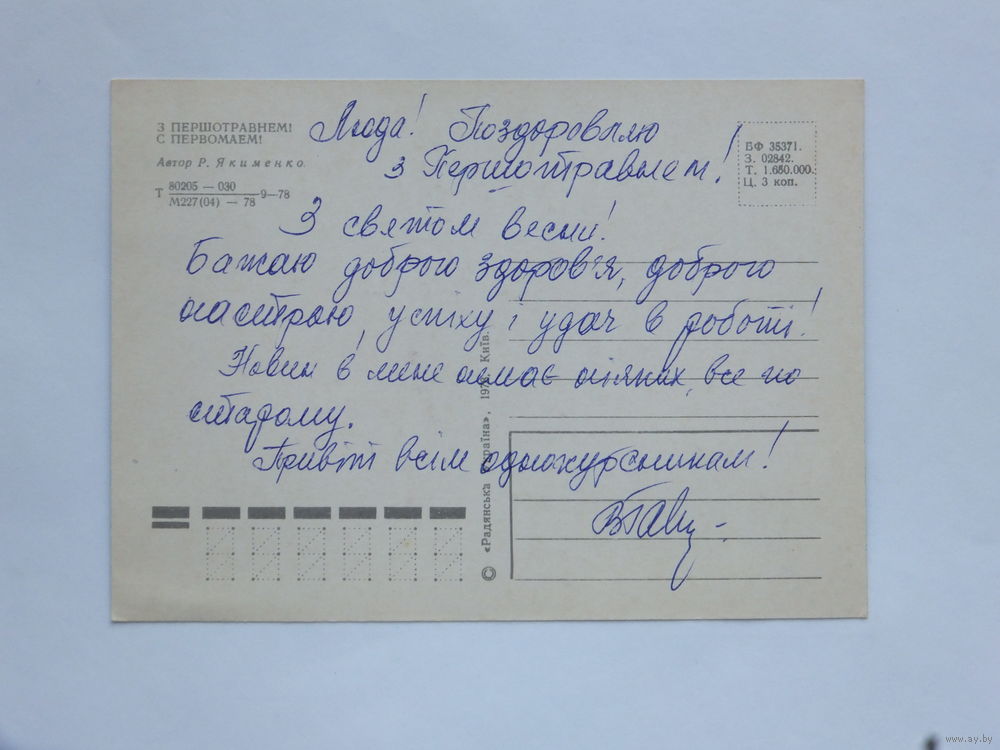 З ПЕРШОТРАВНЕМ!
С ПЕРВОМАЕМ!
Автор Р. Якименко.
Т 80205 — 030
М227(04) — 78 9—78
БФ 35371.
З. 02842.
Т. 1.650.000.
Ц. 3 коп.
Люда! Поздоровляю
з Першотравнем!
З святом весни!
Бажаю доброго здоров'я, доброго
настрою, успіху і удач в роботі!
Новин в мене немає ніяких, все по
старому.
Привіт всім однокурсникам!
© «Радянська Україна», Київ.
www.ay.by